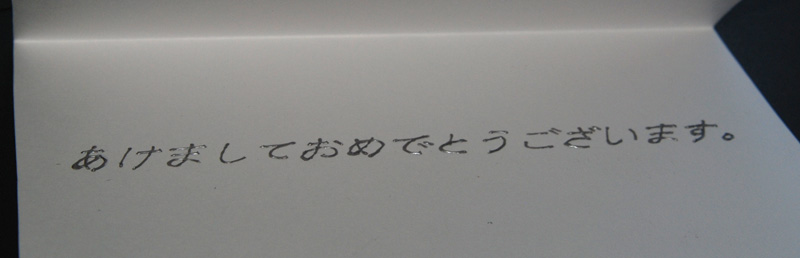 あけましておめでとうございます。